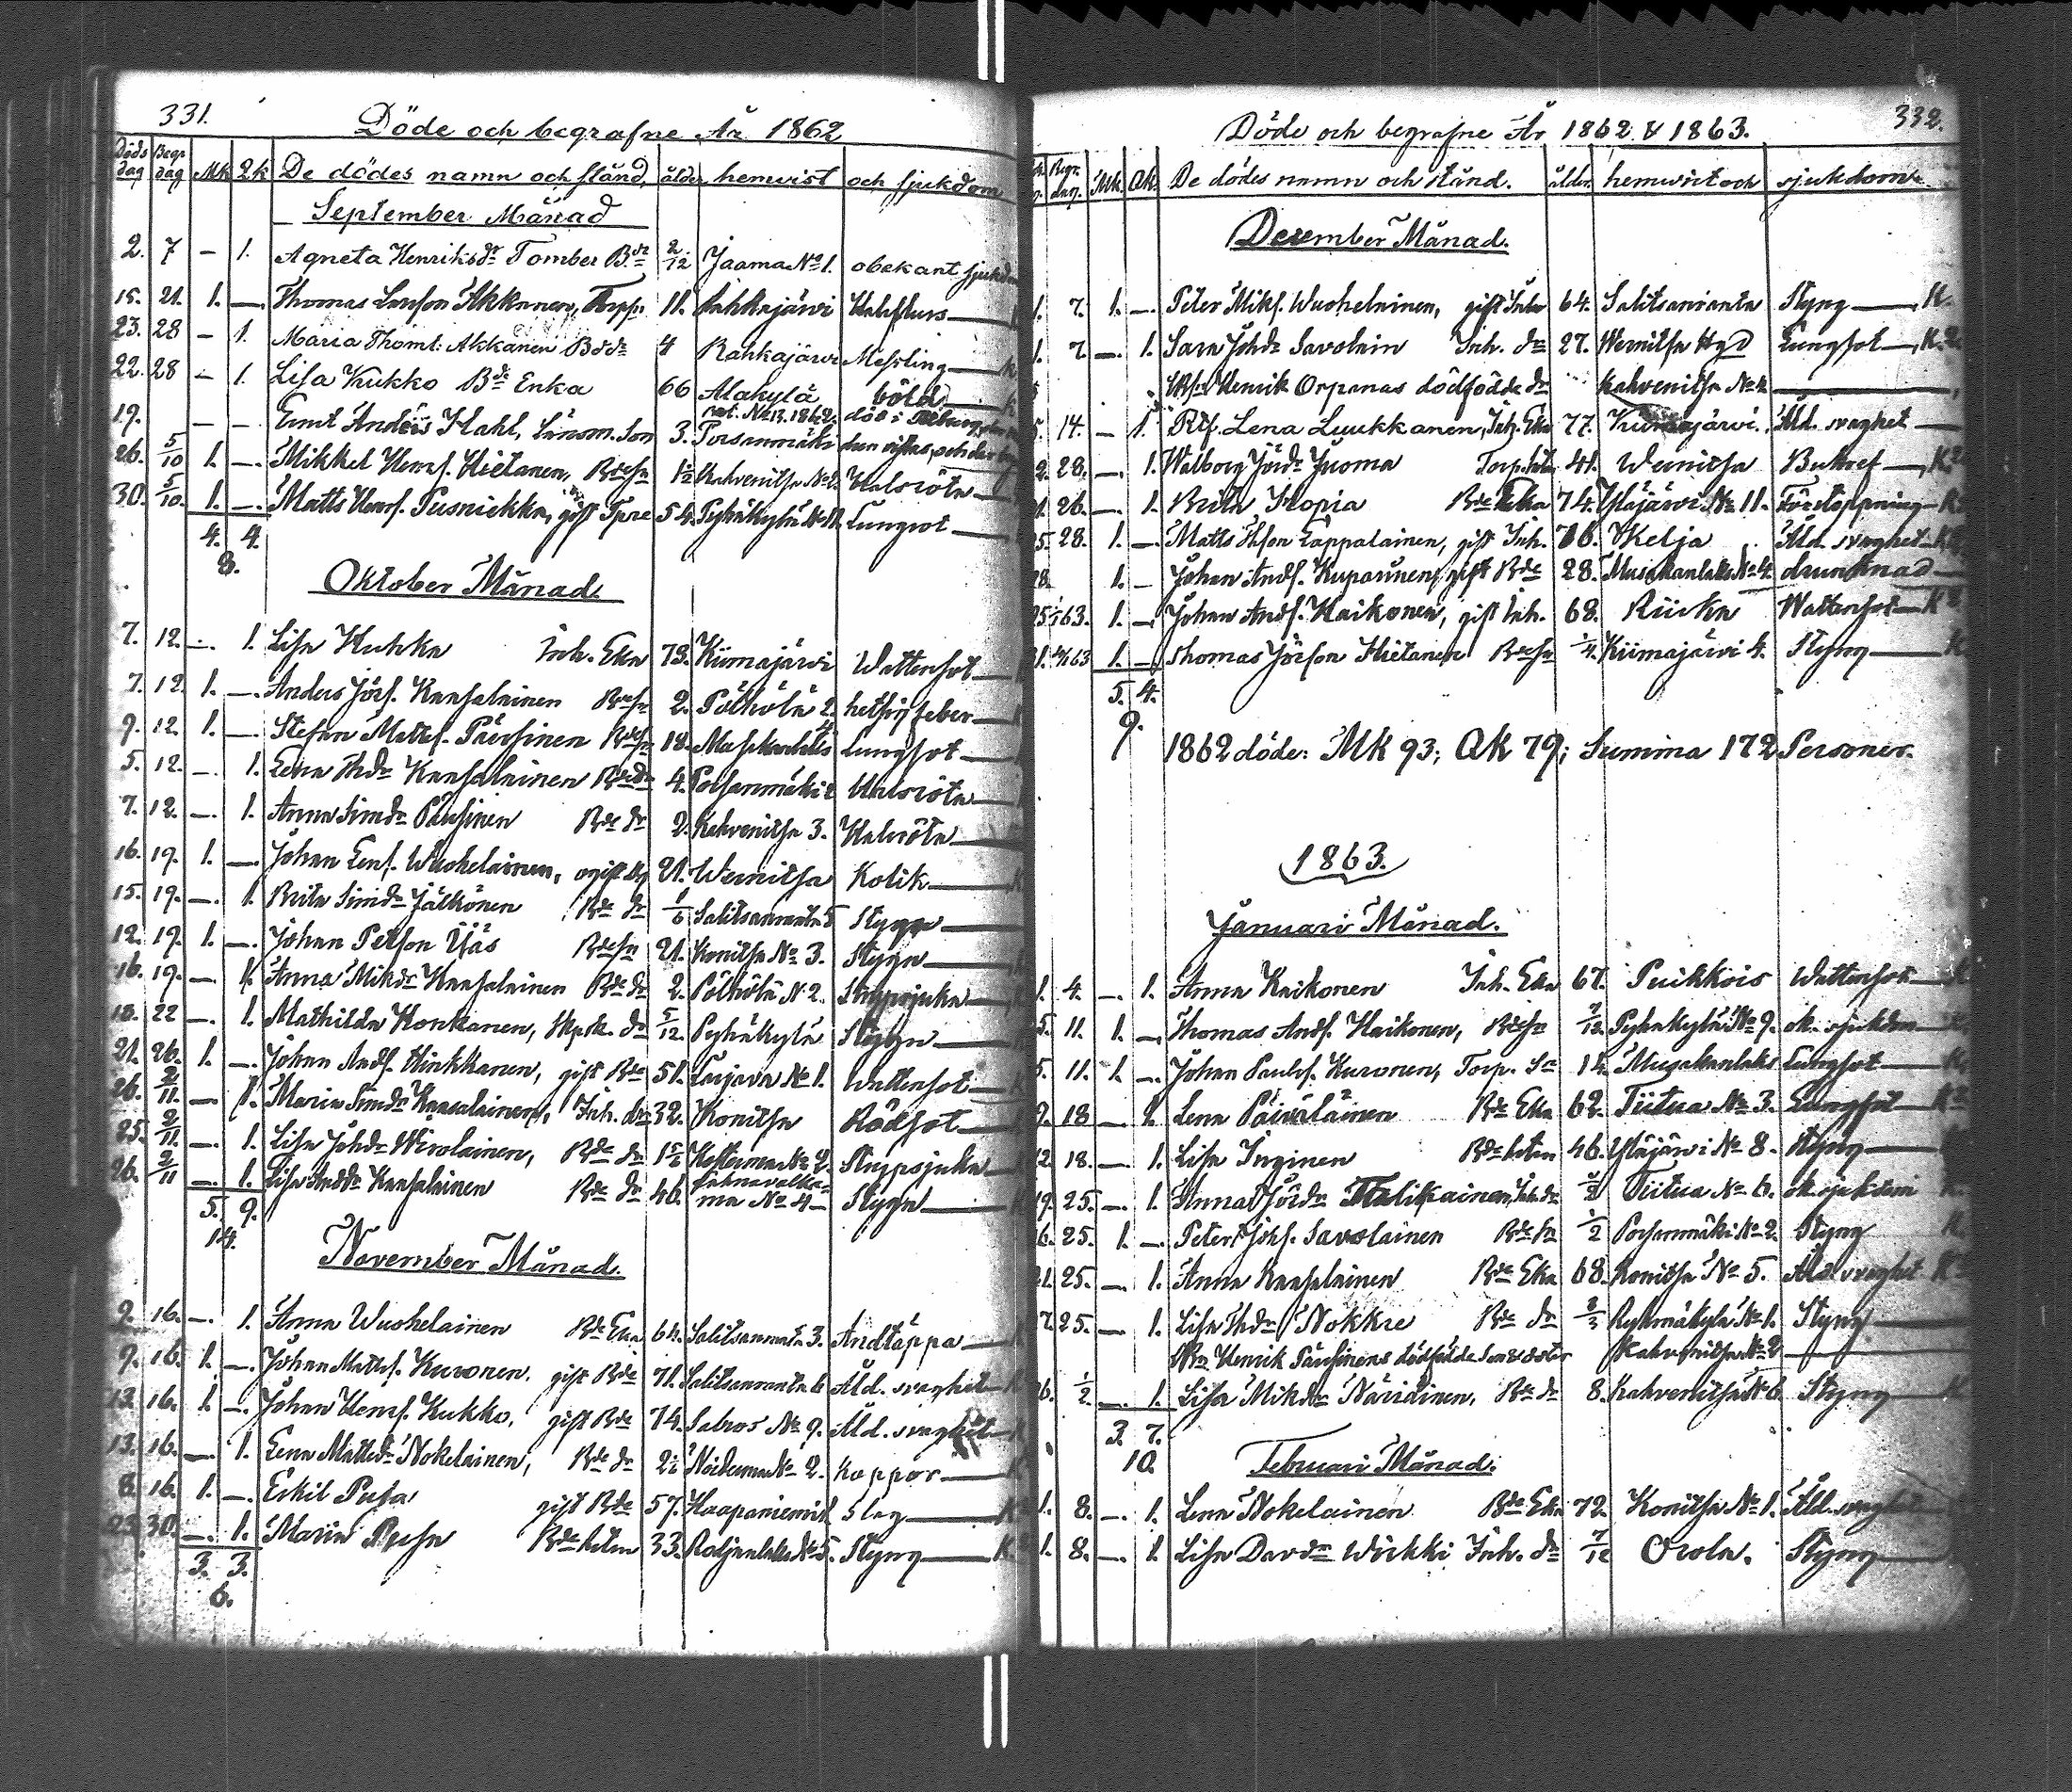 331.
Döde och begrafne År 1862
Döds dag Begr dag Mk Qk De dödes namn och stånd, ålder hemvist och sjukdom
September Månad
2. 7 — 1. Agneta Henriksdr Tomber Bdr 2/12 Jaama No 1. obekant sjukdom
15. 21. 1. — Thomas Akkanen, 11. Rahkajärvi
23. 28 — 1. Maria Thoms. Akkanen Bdedr 4 Rahkajärvi Messling
22. 28 — 1. Lisa Kukko Bde Enka 66 Alakylä böld
19. — — Emil Anders Stahl, Länsm. Son 3. Porsanmäki
26. 5/10 1. — Mikkel Henrs. Hietanen, Bdesn 1½ Kahvenitsa No 2. Halsröta
30. 5/10. 1. — Matts Henrs. Pusniekka, gift 54. Pyhäkylä Lungsot
4. 4.
8.
Oktober Månad.
7. 12. — 1. Lisa Kuhka Inh. Eka 73. Kiimajärvi Wattensot
7. 12. 1. — Anders Jörs. Kansalainen Bdesn 2. Pölhölä 2. hetsig feber
9. 12. 1. — Stefan Matts. Pärsinen Bdesn 18. Lungsot
5. 12. — 1. Lena Thdr Kansalainen Bdedr 4. Porsanmäki 2 Halsröta
7. 12. — 1. Anna Simdr Pärsinen Bde dr 2. Kahvenitsa 3. Halsröta
16. 19. 1. — Johan Wuohelainen, ogift 21. Wernitsa Kolik
15. 19. — 1. Brita Simdr Jälkönen Bde dr 1/6 Salitsanranta 5 Styng
12. 19. 1. — Johan Petson Ijäs Bdesn 21. Konitsa No 3. Styng
16. 19. — 1. Anna Mikdr Kansalainen Bde dr 2. Pölhölä N 2. Strypsjuka
18. 22 — 1. Mathilda Konkanen, dr 5/12 Pyhäkylä Styng
21. 26. 1. — Johan Ands. Hinkkanen, gift Bde 51. Lujava No 1. Wattensot
26. 2/11. — 1. Maria Simdr Kansalainen, Inh. dr 32. Konitsa Rödsot
25. 2/11. — 1. Lisa Johdr Wirolainen, Bde dr 1 5/6 No 2. Strypsjuka
26. 2/11 — 1. Lisa Anddr Kansalainen Bde dr 46. Lahnavalkama No 4 Styng
5. 9.
14.
November Månad.
9. 16. — 1. Anna Wuohelainen Bde Eka 64. Salitsanranta 3. Andtäppa
9. 16. 1. — Johan Matts. Kuronen, gift Bde 71. Salitsanranta 6 Åld. svaghet
13. 16. 1. — Johan Henrs. Kukko, gift Bde 74. Salros No 9. Åld. svaghet
13. 16. — 1. Lena Mattsdr Nokelainen, Bde dr Noiderma No 2. koppor
8. 16. 1. — Eskil Pusa gift Bde 57. Haapaniemi Slag
23 30. — 1. Maria Pusa Bde 33. No 5. Styng
3. 3.
6.
332.
Döde och begrafne År 1862 & 1863.
Begr. dag. Mk. Qk. De dödes namn och stånd. ålder. hemvist och sjukdom.
December Månad.
1. 7. 1. — Peter Miks. Wuohelainen, gift Inh 64. Salitsanranta Styng K.
1. 7. — 1. Sara Johdr Savolain Inh. dr 27. Wernitsa Hgd Lungsot
Henrik Orpanas dödfödde dr Kahvenitsa No 4
14. — 1. Lena Luukkanen, Inh. Eka 77. Kiimajärvi. Åld. svaghet
28. — 1. Walborg Jördr Juoma Torp. 41. Wernitsa Bukref
26. — 1. Brita Hopia Bde Eka 74. Yläjärvi No 11. Förstoppning
25. 28. 1. — Matts Lappalainen, gift Inh. 76. Wkelja Åld. svaghet
28. 1. — Johan Ands. Kuparinen, gift Bde 28. No 4. drunknad
25. 1/1 63. 1. — Johan Ands. Kaikonen, gift Inh. 68. Riiska Wattensot
31. 4/1 63 1. — Thomas Jörson Hietanen Bdesn ¼. Kiimajärvi 4. Styng
5. 4.
9.
1862 döde: Mk 93; Qk 79; Summa 172 Personer.
1863.
Januari Månad.
1. 4. — 1. Anna Kaikonen Inh. Eka 67. Puikkois Wattensot
5. 11. 1. — Thomas Ands. Kaikonen, Bdesn 7/12. Pyhäkylä No 9. ok. sjukdom
5. 11. 1. — Johan Pauls. Kuronen, Torp. Sn 14. Lungsot
9. 18 — 1. Lena Päiväläinen Bde Eka 62. Tiitua No 3. Lungsot
12. 18. — 1. Lisa Inginen Bde 46. Yläjärvi No 8. Styng
19. 25. — 1. Anna Jördr Talikainen, Inh. dr Tiitua No 6. ok. sjukdom
16. 25. 1. — Peter Johs. Savolainen Bde sn ½ Porsanmäki No 2. Styng
21. 25. — 1. Anna Kansalainen Bde Eka 68. Konitsa No 5. Åld. svaghet
17. 25. — 1. Lisa Thdr Nokkre Bde dr 2/3 No 1. Styng
Henrik Pärsinens dödfödde Son & dotter Kahvenitsa No 2
26. ½ — 1. Lisa Mikdr Näriäinen, Bde dr 8. Kahvenitsa No 6 Styng
3. 7.
10.
Februari Månad.
1. 8. — 1. Lena Nokelainen Bde Eka 72. Konitsa No 1. Åld. svaghet
1. 8. — 1. Lisa Davdr Wirkki Inh. dr 7/12 Orola. Styng